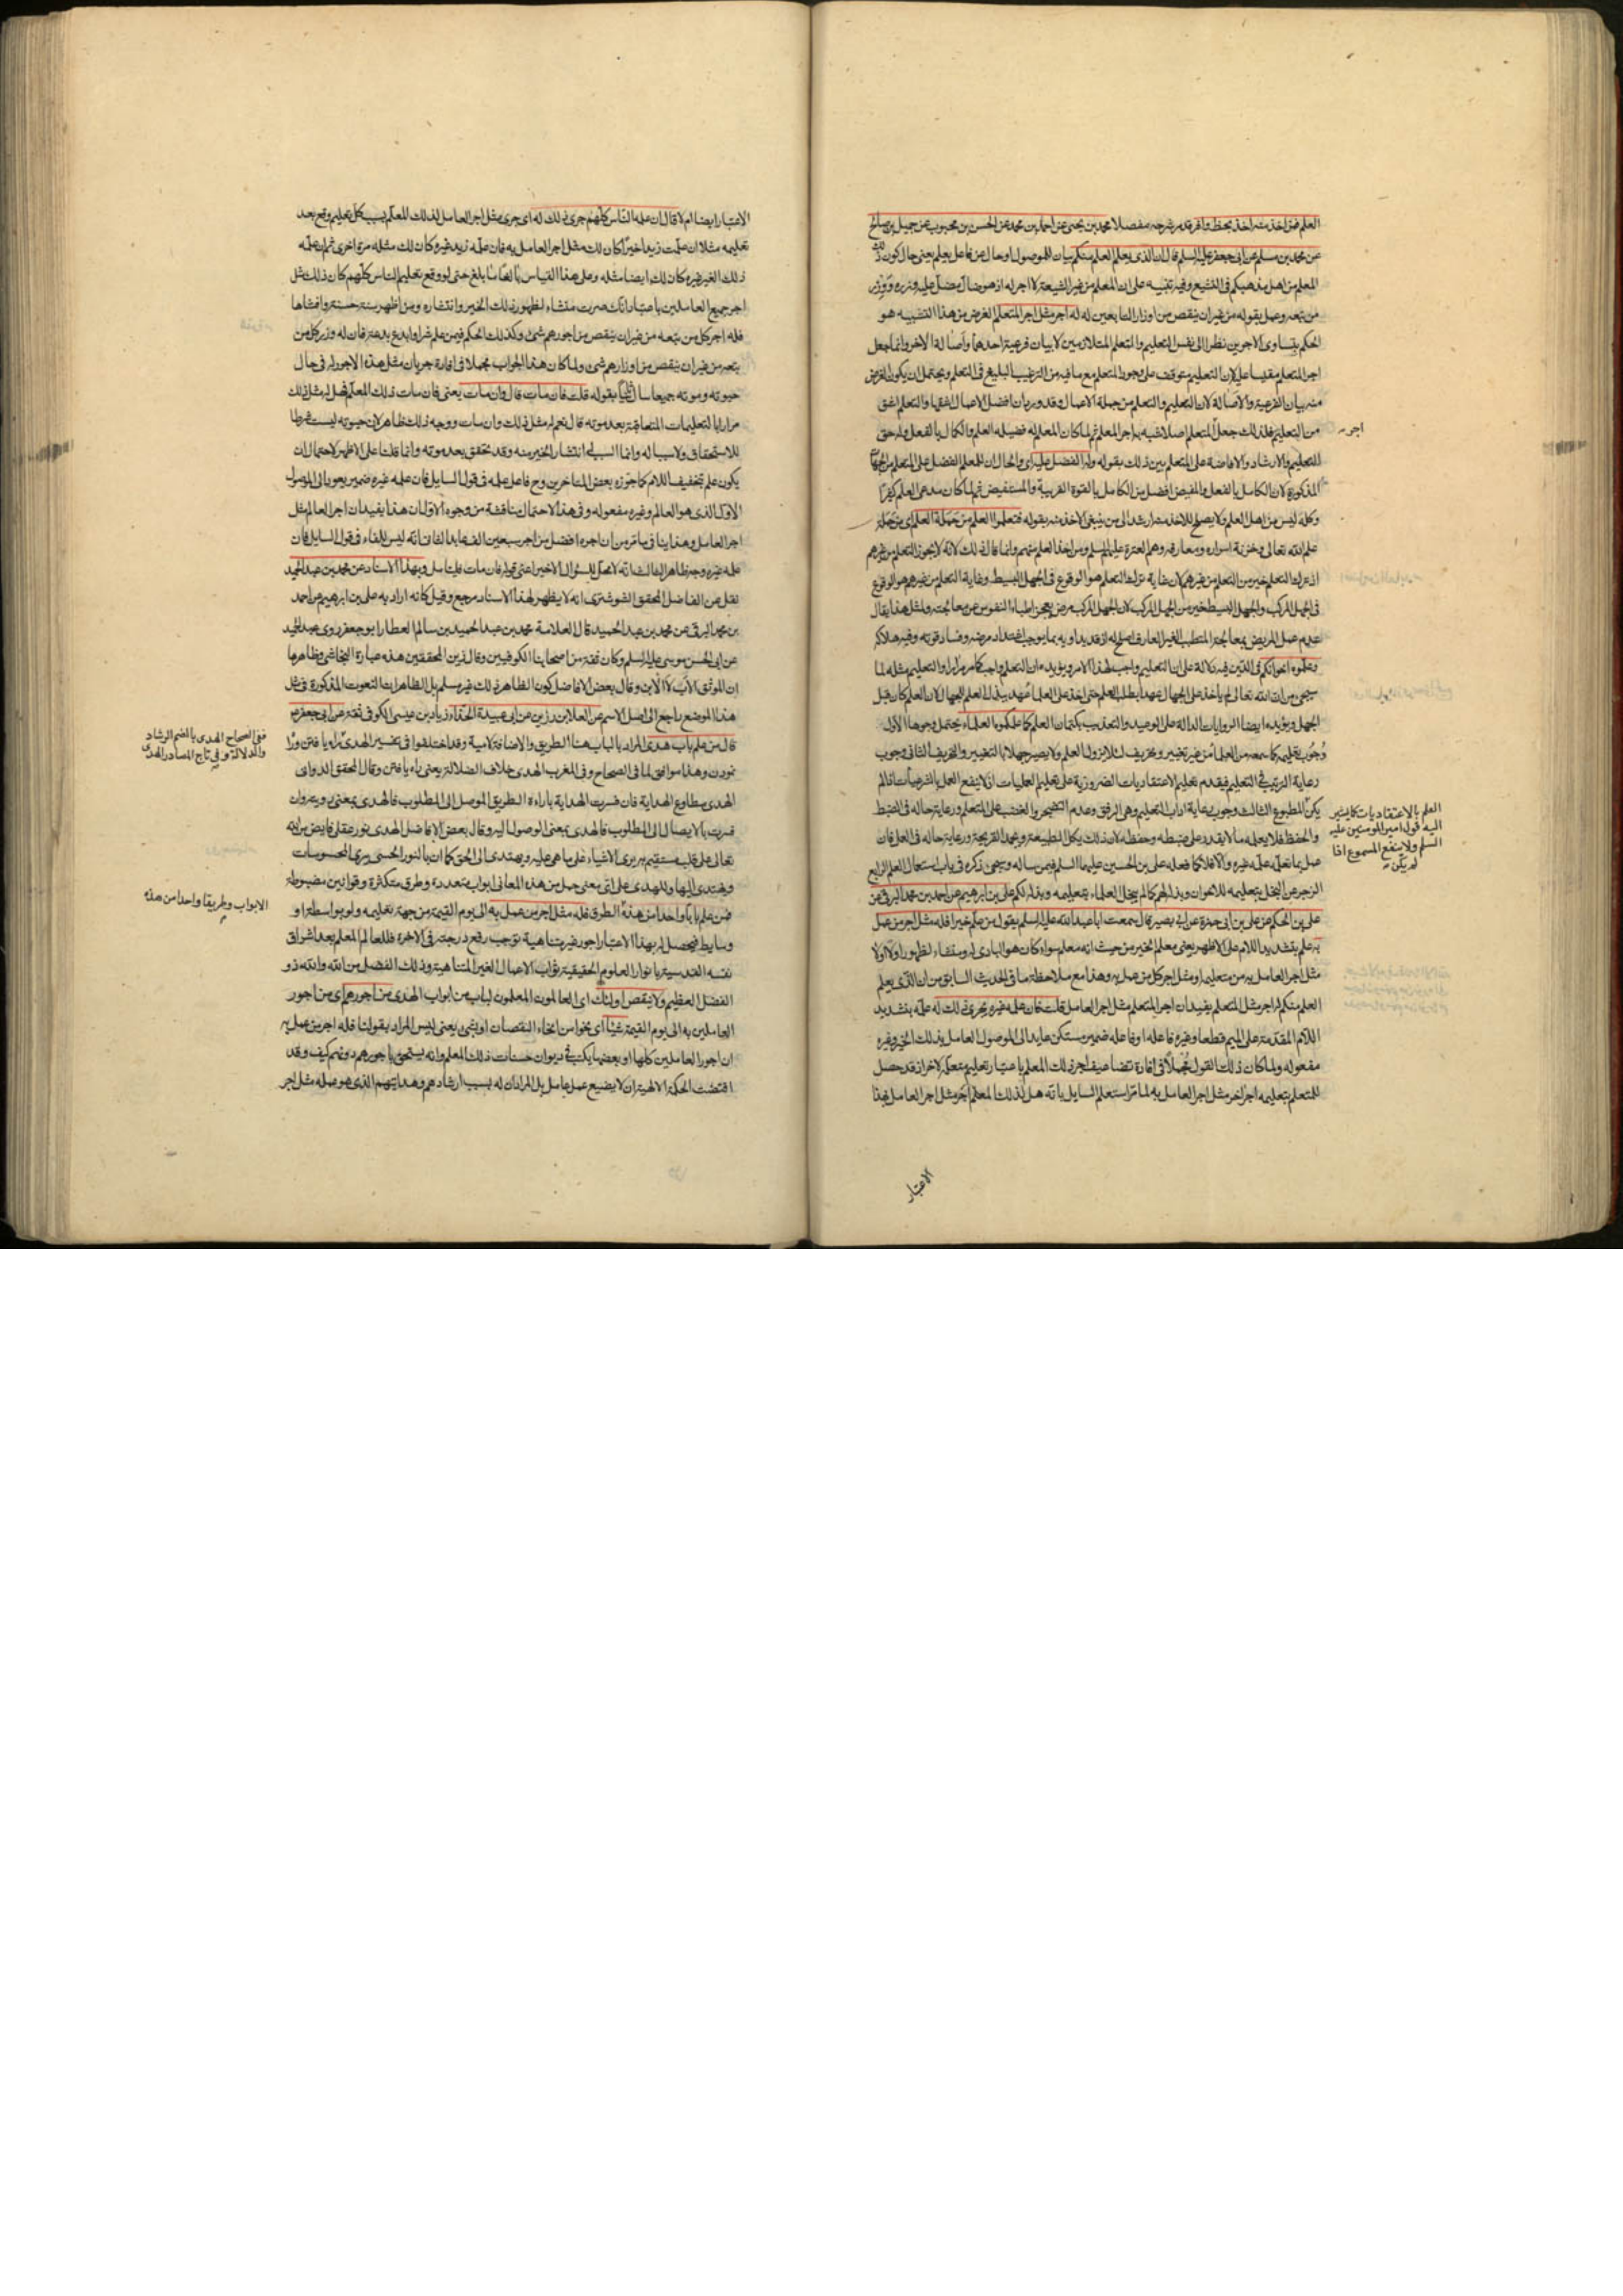 العلم فمن اخذ منه اخذ بحظ وافر قد مر شرحه مفصلا محمد بن يحيى عن احمد بن محمد عن الحسن بن محبوب عن جميل بن صالح
عن محمد بن مسلم عن ابى جعفر عليه السلم قال ان الذى يعلم العلم منكم بيان للموصول او حال عن فاعل يعلم يعنى حال كون ذلك
المعلم من اهل مذهبكم فى التشيع وفيه تنبيه على ان المعلم من غير الشيعة لا اجر له اذ هو ضال مضل عليه وزره ووزر
من تبعه وعمل بقوله من غير ان ينقص من اوزار التابعين له له اجر مثل اجر المتعلم الغرض من هذا التشبيه هو
الحكم بتساوى الاجرين نظرا الى نفس التعليم والتعلم المتلازمين لا بيان فرعية احدهما واصالة الاخر وانما جعل
اجر المتعلم مقيسا عليه لان التعليم متوقف على وجود المتعلم مع ما فيه من الترغيب البليغ فى التعلم ويحتمل ان يكون الغرض
منه بيان الفرعية والاصالة لان التعليم والتعلم من جملة الاعمال وقد ورد ان افضل الاعمال اشقها والتعلم اشق
من التعليم فلذلك جعل المتعلم اصلا شبه به اجر المعلم ثم لما كان المعلم له فضيلة العلم والكمال بالفعل وله حق
اجر
التعليم والارشاد والافاضة على المتعلم بين ذلك بقوله وله الفضل عليه اى والحال ان للمعلم الفضل على المتعلم من الجهات
المذكورة لان الكامل بالفعل والمفيض افضل من الكامل بالقوة القريبة والمستفيض ثم لما كان مدعى العلم كثيرا
وكله ليس من اهل العلم ولا يصلح للاخذ منه ارشد الى من ينبغى الاخذ منه بقوله فتعلموا العلم من حملة العلم اى من حملة
علم الله تعالى وخزنة اسراره ومعارفه وهم العترة عليهم السلم ومن اخذ العلم منهم وانما قال ذلك لانه لا يجوز التعلم من غيرهم
اذ ترك التعلم خير من التعلم من غيرهم لان غاية ترك التعلم هو الوقوع فى الجهل البسيط وغاية التعلم من غيرهم هو الوقوع
فى الجهل المركب والجهل البسيط خير من الجهل المركب لان الجهل المركب مرض يعجز اطباء النفوس عن معالجته ولمثل هذا يقال
عدم عمل المريض بمعالجة المتطبب الغير العارف اصلح له اذ قد يداويه بما يوجب اشتداد مرضه وفساد قوته وفيه هلاكه
وعلموه اخوانكم فى الدين فيه دلالة على ان التعليم واجب لهذا الامر ويؤيده ان التعلم واجب كما مر مرارا والتعليم مثله لما
سيجئ من ان الله تعالى لم ياخذ على الجهال عهدا بطلب العلم حتى اخذ على العلماء عهدا ببذل العلم للجهال لان العلم كان قبل
الجهل ويؤيده ايضا الروايات الدالة على الوعيد والتعذيب بكتمان العلم كما علمكموه العلماء يحتمل وجوها الاول
وجوب تعليمه كما سمعه من العلماء من غير تغيير وتحريف لئلا يزول العلم ولا يصير جهلا بالتغيير والتحريف الثانى وجوب
رعاية الترتيب فى التعليم فيقدم تعليم الاعتقاديات الضرورية على تعليم العمليات اذ لا ينفع العمل بالشرعيات اذا لم
العلم بالاعتقاديات كما يشير
اليه قول امير المومنين عليه
السلم ولا ينفع المسموع اذا
لم يكن
يكن المطبوع الثالث وجوب رعاية اداب التعليم وهى الرفق وعدم التضجر والغضب على المتعلم ورعاية حاله فى الضبط
والحفظ فلا يعلمه ما لا يقدر على ضبطه وحفظه لان ذلك يكل الطبيعة ويجمد القريحة ورعاية حاله فى العمل فان
عمل بما تعلم علمه غيره والا فلا كما فعله على بن الحسين عليهما السلم فيمن ساله وسيجئ ذكره فى باب استعمال العلم الرابع
الزجر عن البخل بتعليمه للاخوان وبذله لهم كما لم يبخل العلماء بتعليمه وبذله لكم على بن ابراهيم عن احمد بن محمد البرقى عن
على بن الحكم عن على بن ابى حمزة عن ابى بصير قال سمعت ابا عبد الله عليه السلم يقول من علم خيرا فله مثل اجر من عمل
به علم بتشديد اللام على الاظهر يعنى معلم الخير من حيث انه معلم سواء كان هو البادى له ومنشاء لظهوره اولا او لا
مثل اجر العامل به من متعليه او مثل اجر كل من عمل به وهذا مع ملاحظة ما فى الحديث السابق من ان الذى يعلم
العلم منكم له اجر مثل المتعلم يفيد ان اجر المتعلم مثل اجر العامل قلت فان علمه غيره يجرى ذلك له علمه بتشديد
اللام المقدمة على الميم قطعا وغيره فاعله او فاعله ضمير مستكن عايد الى الموصول العامل بذلك الخير وغيره
مفعوله ولما كان ذلك القول مجملا فى افادة تضاعيف اجر ذلك المعلم باعتبار تعليم متعلمه لاخر اذ قد حصل
للمتعلم بتعليمه اجر اخر مثل اجر العامل به لما مر استعلم السايل بانه هل لذلك المعلم اجر مثل اجر العامل بهذا
الاعتبار
الاعتبار ايضا ام لا قال ان علمه الناس كلهم جرى ذلك له اى جرى مثل اجر العامل لذلك المعلم بسبب كل تعليم وقع بعد
تعليمه مثلا ان علمت زيدا خيرا كان لك مثل اجر العامل به فان علمه زيد غيره كان لك مثله مرة اخرى ثم ان علمه
ذلك الغير غيره كان لك ايضا مثله وعلى هذا القياس بالغا ما بلغ حتى لو وقع تعليم الناس كلهم كان ذلك مثل
اجر جميع العاملين باعتبار انك صرت منشاء لظهور ذلك الخير وانتشاره ومن اظهر سنة حسنة وافشاها
فله اجر كل من تبعه من غير ان ينقص من اجورهم شئ وكذلك الحكم فيمن علم شرا وابدع بدعة فان له وزر كل من
تبعه من غير ان ينقص من اوزارهم شئ ولما كان هذا الجواب مجملا فى افادة جريان مثل هذه الاجور له فى حال
حيوته وموته جميعا سال ثانيا بقوله قلت فان مات قال وان مات يعنى فان مات ذلك المعلم فهل له مثل ذلك
مرارا بالتعليمات المتعاقبة بعد موته قال نعم له مثل ذلك وان مات ووجه ذلك ظاهر لان حيوته ليست شرطا
للاستحقاق ولا سببا له وانما السبب له انتشار الخير منه وقد تحقق بعد موته وانما قلنا على الاظهر لاحتمال ان
يكون علم بتخفيف اللام كما جوزه بعض المتاخرين وح فاعل علمه فى قول السايل فان علمه غيره ضمير يعود الى الموصول
الاول الذى هو العالم وغيره مفعوله وفى هذا الاحتمال مناقشة من وجوه الاول ان هذا يفيد ان اجر العالم مثل
اجر العامل وهذا ينافى ما مر من ان اجره افضل من اجر سبعين الف عابد الثانى انه ليس للفاء فى قول السايل فان
علمه غيره وجه ظاهر الثالث انه لا محل للسؤال الاخير اعنى قوله فان مات فليتامل وبهذا الاسناد عن محمد بن عبد الحميد
نقل عن الفاضل المحقق الشوشترى انه لا يظهر لهذا الاسناد مرجع وقيل كانه اراد به على بن ابرهيم عن احمد
بن محمد البرقى عن محمد بن عبد الحميد قال العلامة محمد بن عبد الحميد بن سالم العطار ابو جعفر روى عبد الحميد
عن ابى الحسن موسى عليه السلم وكان ثقة من اصحابنا الكوفيين وقال زين المحققين هذه عبارة النجاشى وظاهرها
ان الموثق الاب لا الابن وقال بعض الافاضل كون الظاهر ذلك غير مسلم بل الظاهر ان النعوت المذكورة فى مثل
هذا الموضع راجع الى اصل الاسم عن العلا بن رزين عن ابى عبيدة الحذاء زياد بن عيسى الكوفى ثقة عن ابى جعفر ع
قال من علم باب هدى المراد بالباب هنا الطريق والاضافة لامية وقد اختلفوا فى تفسير الهدى راه يافتن ورا
ففى الصحاح الهدى بالضم الرشاد
والدلالة وفى تاج المصادر الهدى
نمودن وهذا موافق لما فى الصحاح وفى المغرب الهدى خلاف الضلالة يعنى راه يافتن وقال المحقق الدوانى
الهدى مطاوع الهداية فان فسرت الهداية باراءة الطريق الموصل الى المطلوب فالهدى بمعنى رويتة وان
فسرت بالايصال الى المطلوب فالهدى بمعنى الوصول اليه وقال بعض الافاضل الهدى نور عقلى فايض من الله
تعالى على قلب مستقيم به يرى الاشياء على ما هى عليه ويهتدى الى الحق كما ان بالنور الحسى يرى المحسوسات
ويهتدى اليها وللهدى على اى معنى حمل من هذه المعانى ابواب متعددة وطرق متكثرة وقوانين مضبوطة
فمن علم بابا واحدا من هذه الطرق فله مثل اجر من عمل به الى يوم القيمة من جهة تعليمه ولو بواسطة او
الابواب وطريقا واحدا من هذه
وسايط فيحصل له بهذا الاعتبار اجور غير متناهية توجب رفع درجته فى الاخرة فللعالم المعلم بعد اشراق
نفسه القدسية بانوار العلوم الحقيقية ثواب الاعمال الغير المتناهية وذلك الفضل من الله والله ذو
الفضل العظيم ولا ينقص اولئك اى العالمون المعلمون لباب من ابواب الهدى من اجورهم اى من اجور
العاملين به الى يوم القيمة شيئا اى نحوا من انحاء النقصان او شئ يعنى ليس المراد بقولنا فله اجر من عمل به
ان اجور العاملين كلها او بعضها يكتب فى ديوان حسنات ذلك المعلم وانه يستحق باجورهم دونهم كيف وقد
اقتضت الحكمة الالهية ان لا يضيع عمل عامل بل المراد ان له بسبب ارشادهم وهدايتهم الذى هو عمله مثل اجر